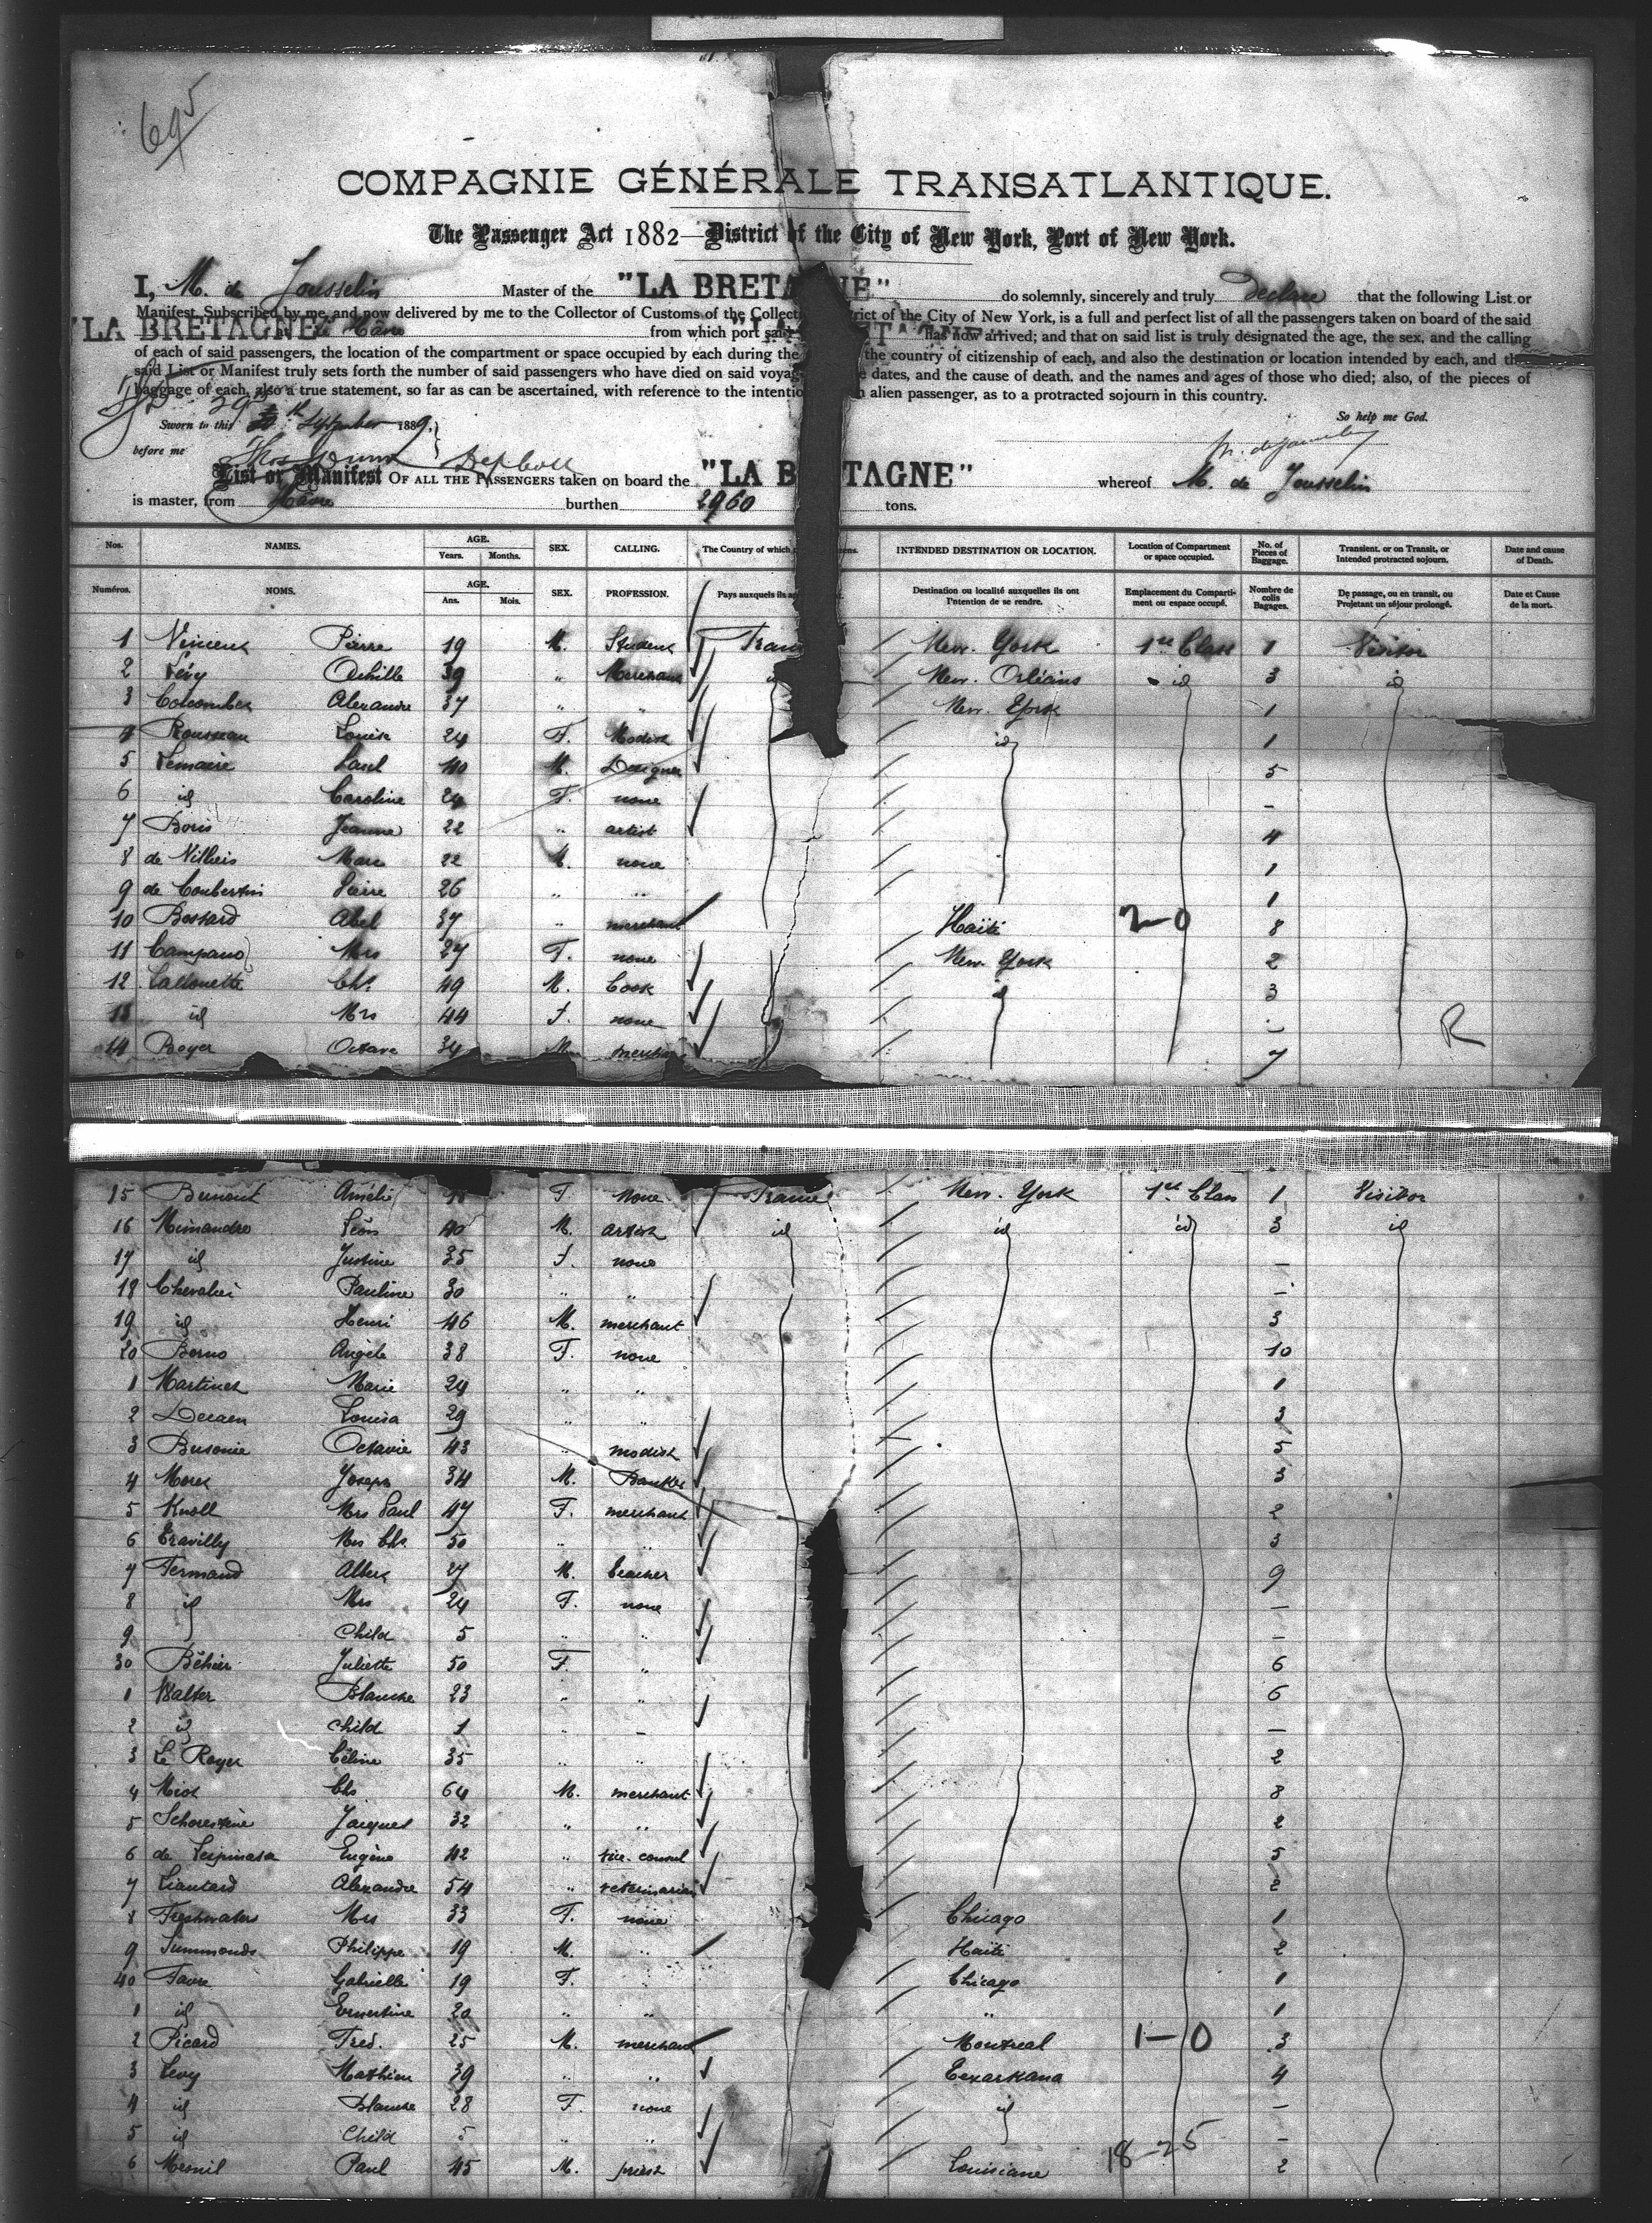 695
COMPAGNIE GÉNÉRALE TRANSATLANTIQUE.
The Passenger Act 1882—District of the City of New York, Port of New York.
I, M. de Jousselin Master of the "LA BRETAGNE" do solemnly, sincerely and truly declare that the following List or
Manifest, Subscribed by me, and now delivered by me to the Collector of Customs of the Collection District of the City of New York, is a full and perfect list of all the passengers taken on board of the said
"LA BRETAGNE" Hâvre from which port said "LA BRETAGNE" has now arrived; and that on said list is truly designated the age, the sex, and the calling
of each of said passengers, the location of the compartment or space occupied by each during the the country of citizenship of each, and also the destination or location intended by each, and that
said List or Manifest truly sets forth the number of said passengers who have died on said voyage dates, and the cause of death, and the names and ages of those who died; also, of the pieces of
baggage of each, also a true statement, so far as can be ascertained, with reference to the intention alien passenger, as to a protracted sojourn in this country.
Sworn to this 29 th September 1889, So help me God.
before me
List or Manifest OF ALL THE PASSENGERS taken on board the "LA BRETAGNE" whereof M. de Jousselin
is master, from Hâvre burthen 2960 tons.
Nos. NAMES. AGE. Years. Months. SEX. CALLING. The Country of which INTENDED DESTINATION OR LOCATION. Location of Compartment or space occupied. No. of Pieces of Baggage. Transient, or on Transit, or Intended protracted sojourn. Date and cause of Death.
Numéros. NOMS. AGE. Ans. Mois. SEX. PROFESSION. Pays auxquels ils Destination ou localité auxquelles ils ont l'intention de se rendre. Emplacement du Compartiment ou espace occupé. Nombre de colis Bagages. De passage, ou en transit, ou Projetant un séjour prolongé. Date et Cause de la mort.
1 Vincent Pierre 19 M. Student France New. York 1re Class 1 Visitor
2 Lévy Achille 39 " Merchant New. Orléans id 3 id
3 Colcombet Alexandre 37 " " New. York 1
4 Rousseau Louise 24 F. Modist id 1
5 Lemaire Paul 40 M. Designer 5
6 id Caroline 24 F. none -
7 Boris Jeanne 22 " artist 4
8 de Villiers Marc 22 M. none 1
9 de Coubertin Pierre 26 " " 1
10 Bossard Abel 37 " merchant Haïti 2-0 8
11 Campano Mrs 27 F. none New. York 2
12 Lassouette Chs 49 M. Cook id 3
13 id Mrs 44 F. none -
14 Boyer Octave 34 M. merchant 7 R
15 Amélie F none France New. York 1re Class 1 Visitor
16 Mimandre Léon 40 M. artist id id id 3 id
17 id Justine 35 F. none -
18 Chevalier Pauline 30 " " -
19 id Henri 46 M. merchant 3
20 Borno Angèle 38 F. none 10
1 Martinet Marie 24 " " 1
2 Decaen Louisa 29 " " 3
3 Busonie Octavie 43 " modist 5
4 Morel Joseph 34 M. Banker 3
5 Knoll Mrs Paul 47 F. merchant 2
6 Travilly Mrs Chs 50 " " 3
7 Fermaud Albert 27 M. teacher 9
8 id Mrs 24 F. none -
9 Child 5 " " -
30 Béhier Juliette 50 F. " 6
1 Walter Blanche 23 " " 6
2 id child 1 " - -
3 Le Royer Céline 35 " " 2
4 Miot Chs 64 M. merchant 8
5 Jacques 32 " " 2
6 de Lespinasse Eugène 42 " vice-consul 5
7 Liautard Alexandre 54 " veterinarian 2
8 Freshwaters Mrs 33 F. none Chicago 1
9 Simmonds Philippe 19 M. " Haïti 2
40 Favre Gabrielle 19 F. Chicago 1
1 id Ernestine 20 " " " 1
2 Picard Fred. 25 M. merchant Montreal 1-0 3
3 Levy Mathieu 39 " " Texarkana 4
4 id Blanche 28 F. none id -
5 id Child 5 " " -
6 Mesnil Paul 45 M. priest Louisiane 18-25 2